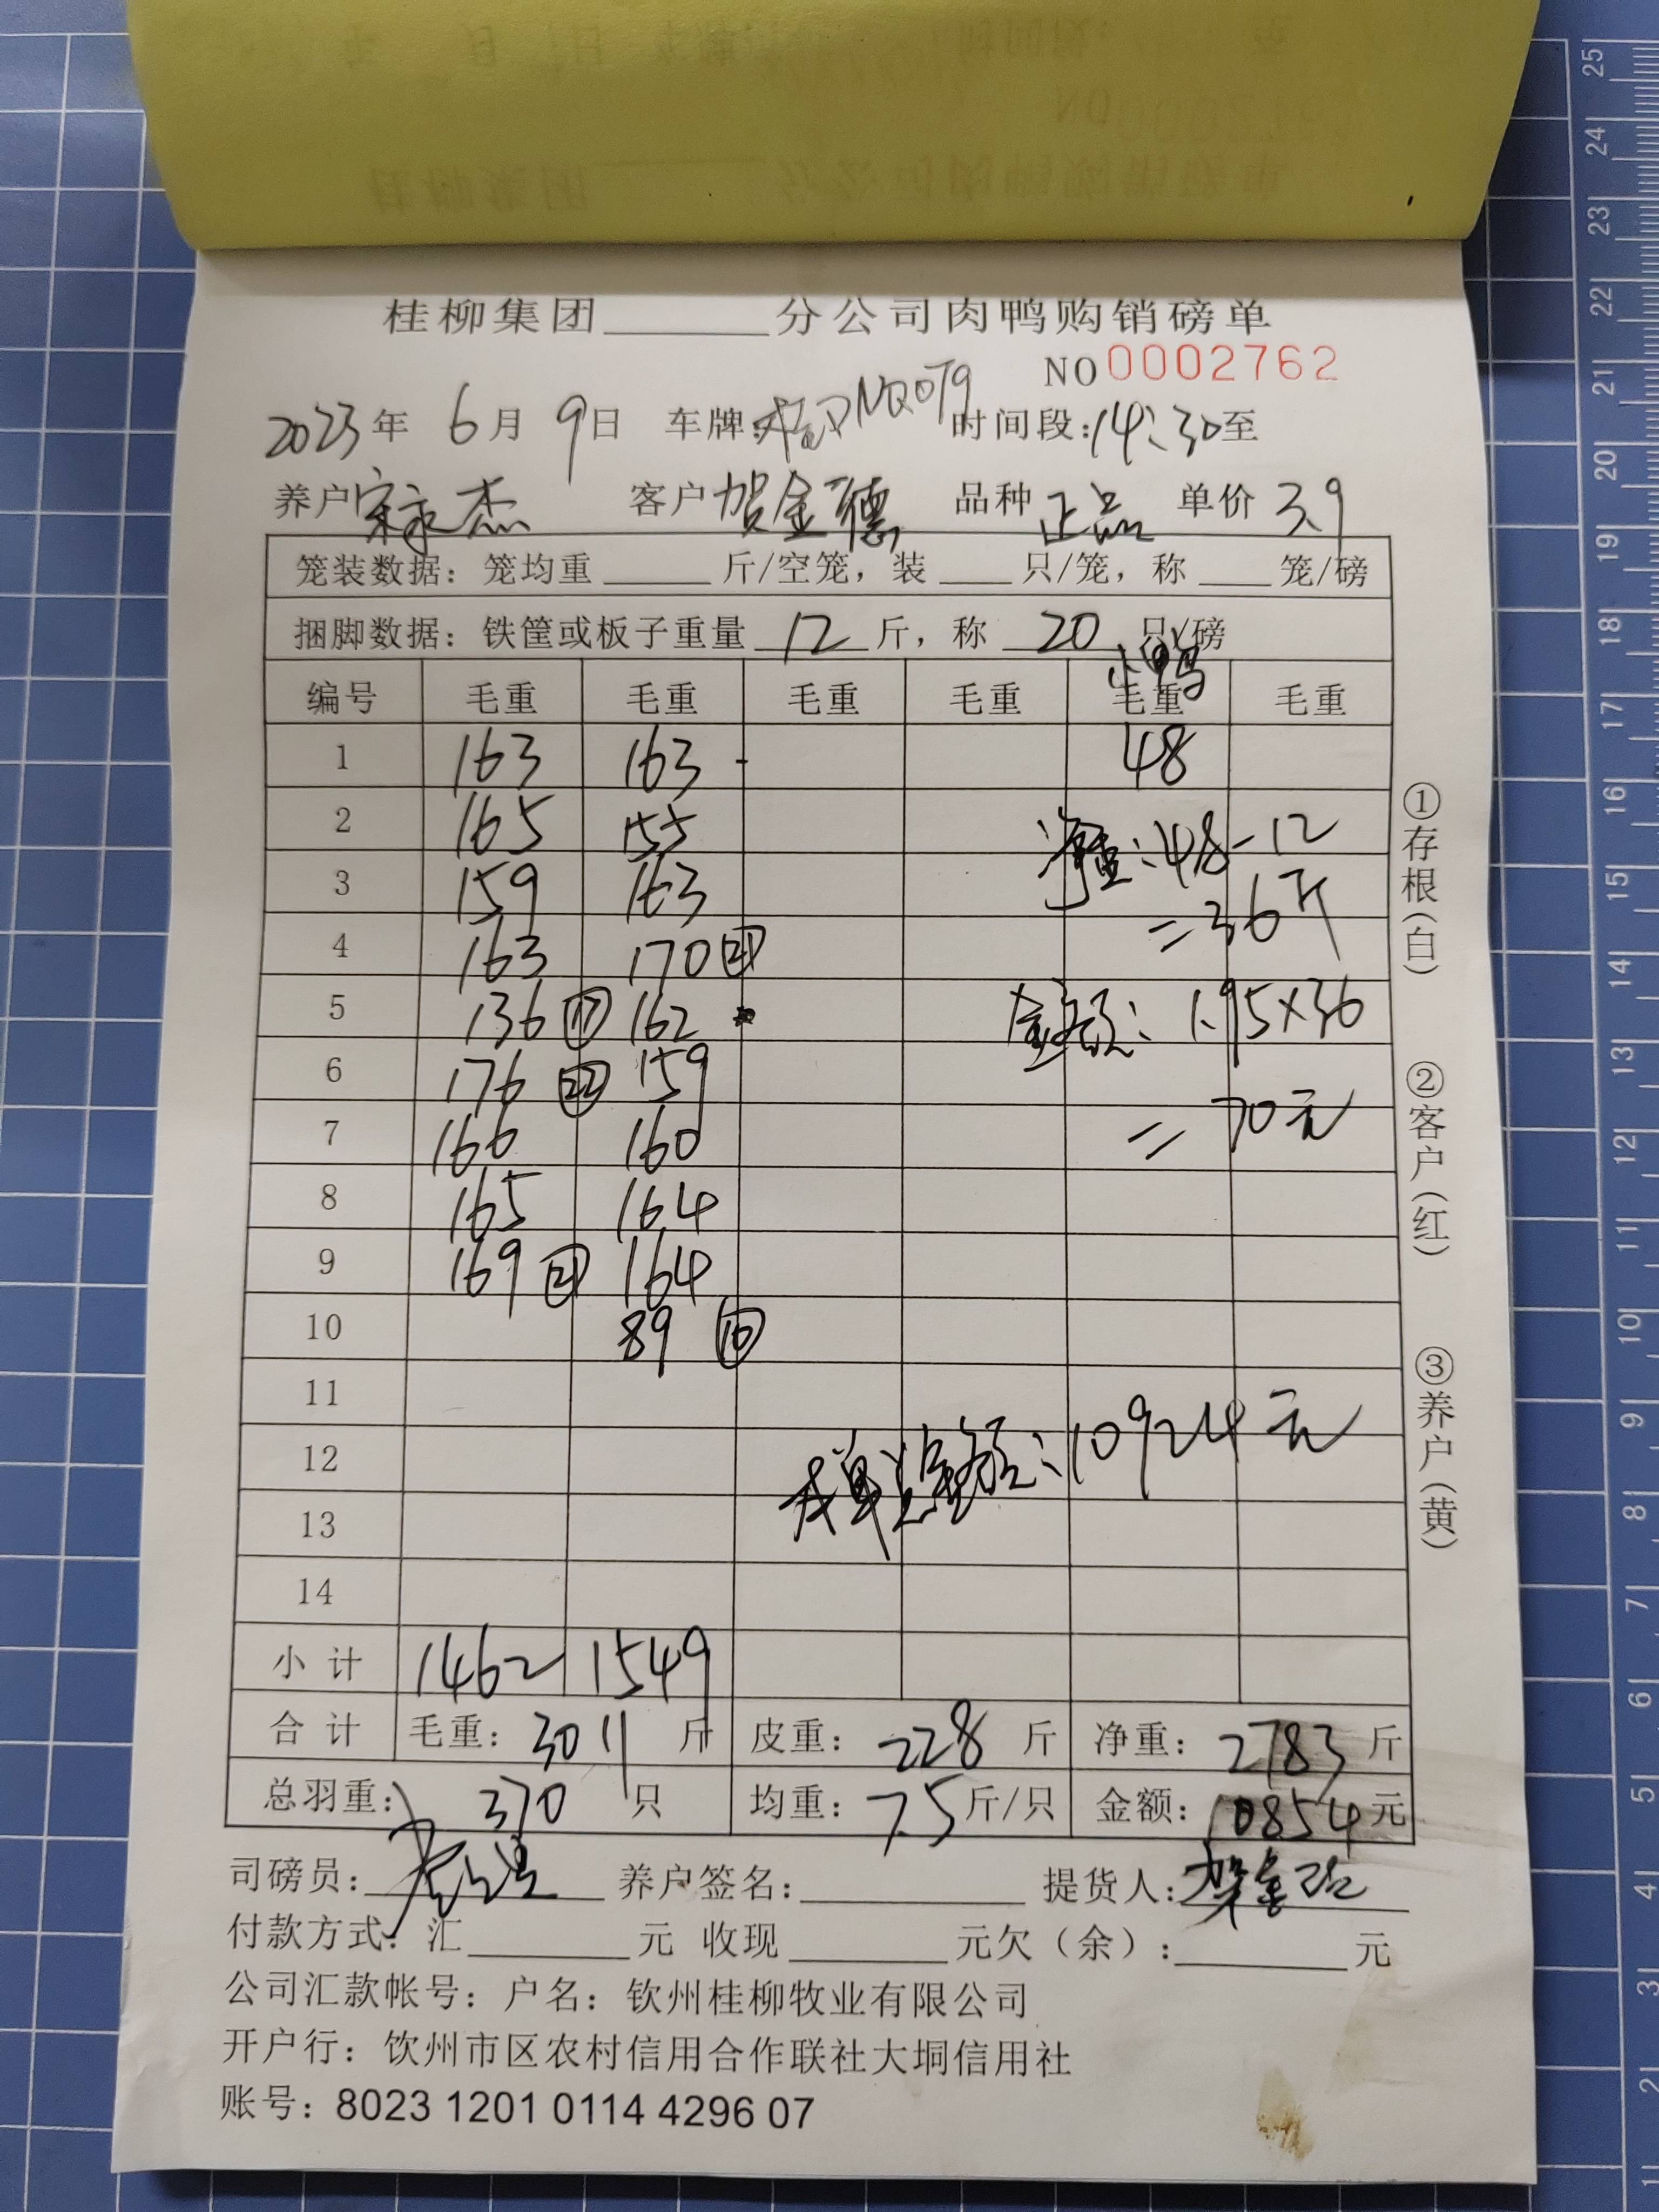 桂柳集团______分公司肉鸭购销磅单
NO 0002762
2023年 6月 9日 车牌:桂NQ079 时间段:14:30至
养户 宋家杰 客户 贺金德 品种 正品 单价 3.9
笼装数据：笼均重____斤/空笼，装___只/笼，称___笼/磅
捆脚数据：铁筐或板子重量 12 斤，称 20 只/磅
小鸭
编号 毛重 毛重 毛重 毛重 毛重 毛重
1 163 163 48
2 165 155 净重:48-12
3 159 163 =36斤
4 163 170 ㉑
5 136 ⑰ 162 金额:1.95×36
6 176 ㉒ 159
7 166 160 =70元
8 165 164
9 169 ㉑ 164
10 89 ⑩
11
12 本单总金额:10924元
13
14
小计 1462 1549
合计 毛重：3011斤 皮重：228斤 净重：2783斤
总羽重：370只 均重：7.5斤/只 金额：10854元
司磅员：______ 养户签名：______ 提货人：
付款方式：汇______元 收现______元欠（余）：______元
公司汇款帐号：户名：钦州桂柳牧业有限公司
开户行：饮州市区农村信用合作联社大垌信用社
账号：8023 1201 0114 4296 07
①存根（白）
②客户（红）
③养户（黄）